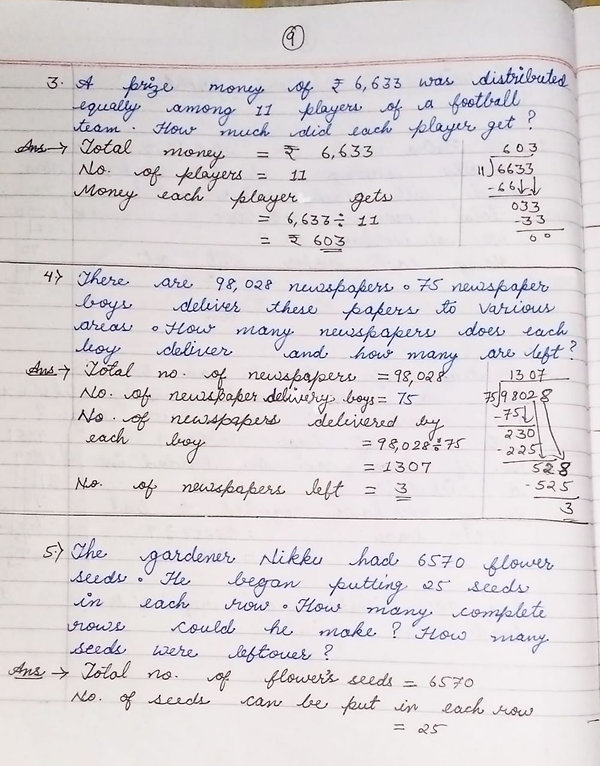 9
3. A prize money of ₹ 6,633 was distributed
equally among 11 players of a football
team. How much did each player get?
Ans → Total money = ₹ 6,633
No. of players = 11
Money each player gets
= 6,633 ÷ 11
= ₹ 603
603
11)6633
-66
033
-33
00
4) There are 98,028 newspapers. 75 newspaper
boys deliver these papers to various
areas. How many newspapers does each
boy deliver and how many are left?
Ans → Total no. of newspapers = 98,028
No. of newspaper delivery boys = 75
No. of newspapers delivered by
each boy = 98,028 ÷ 75
= 1307
No. of newspapers left = 3
1307
75)98028
-75
230
-225
528
-525
3
5) The gardener Nikku had 6570 flower
seeds. He began putting 25 seeds
in each row. How many complete
rows could he make? How many
seeds were leftover?
Ans → Total no. of flower's seeds = 6570
No. of seeds can be put in each row
= 25